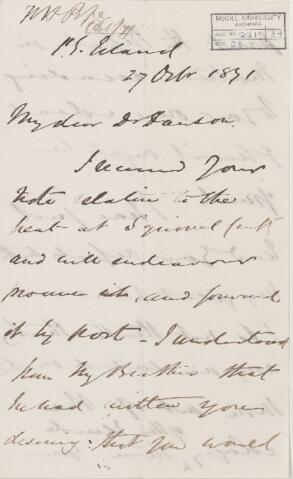 McGILL UNIVERSITY
ARCHIVES
ACC. NO. 2211
REF.
P. E. Island
27 Octr 1871
My dear Dr Dawson.
I received your
note relative to the
peat at Squirrel Creek
and will endeavour
procure it, and forward
it by Post - I understood
from My Brother that
he had written you
desiring that you would